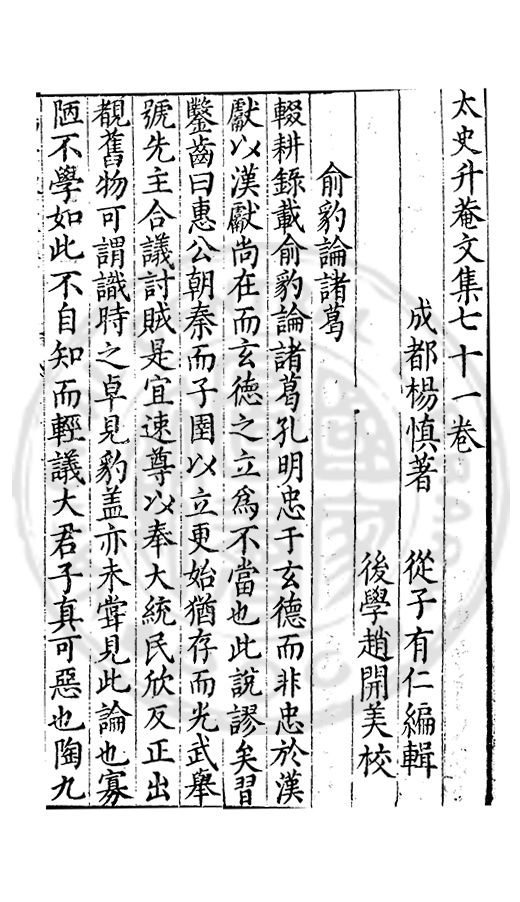 太史升菴文集七十一卷
成都楊慎著 從子有仁編輯
後學趙開美校
俞豹論諸葛
輟耕錄載俞豹論諸葛孔明忠于玄德而非忠於漢
獻以漢獻尚在而玄德之立為不當也此說謬矣習
鑿齒曰惠公朝秦而子圉以立更始猶存而光武舉
號先主合議討賊是宜速尊以奉大統民欣反正出
覩舊物可謂識時之卓見豹盖亦未甞見此論也寡
陋不學如此不自知而輕議大君子真可惡也陶九